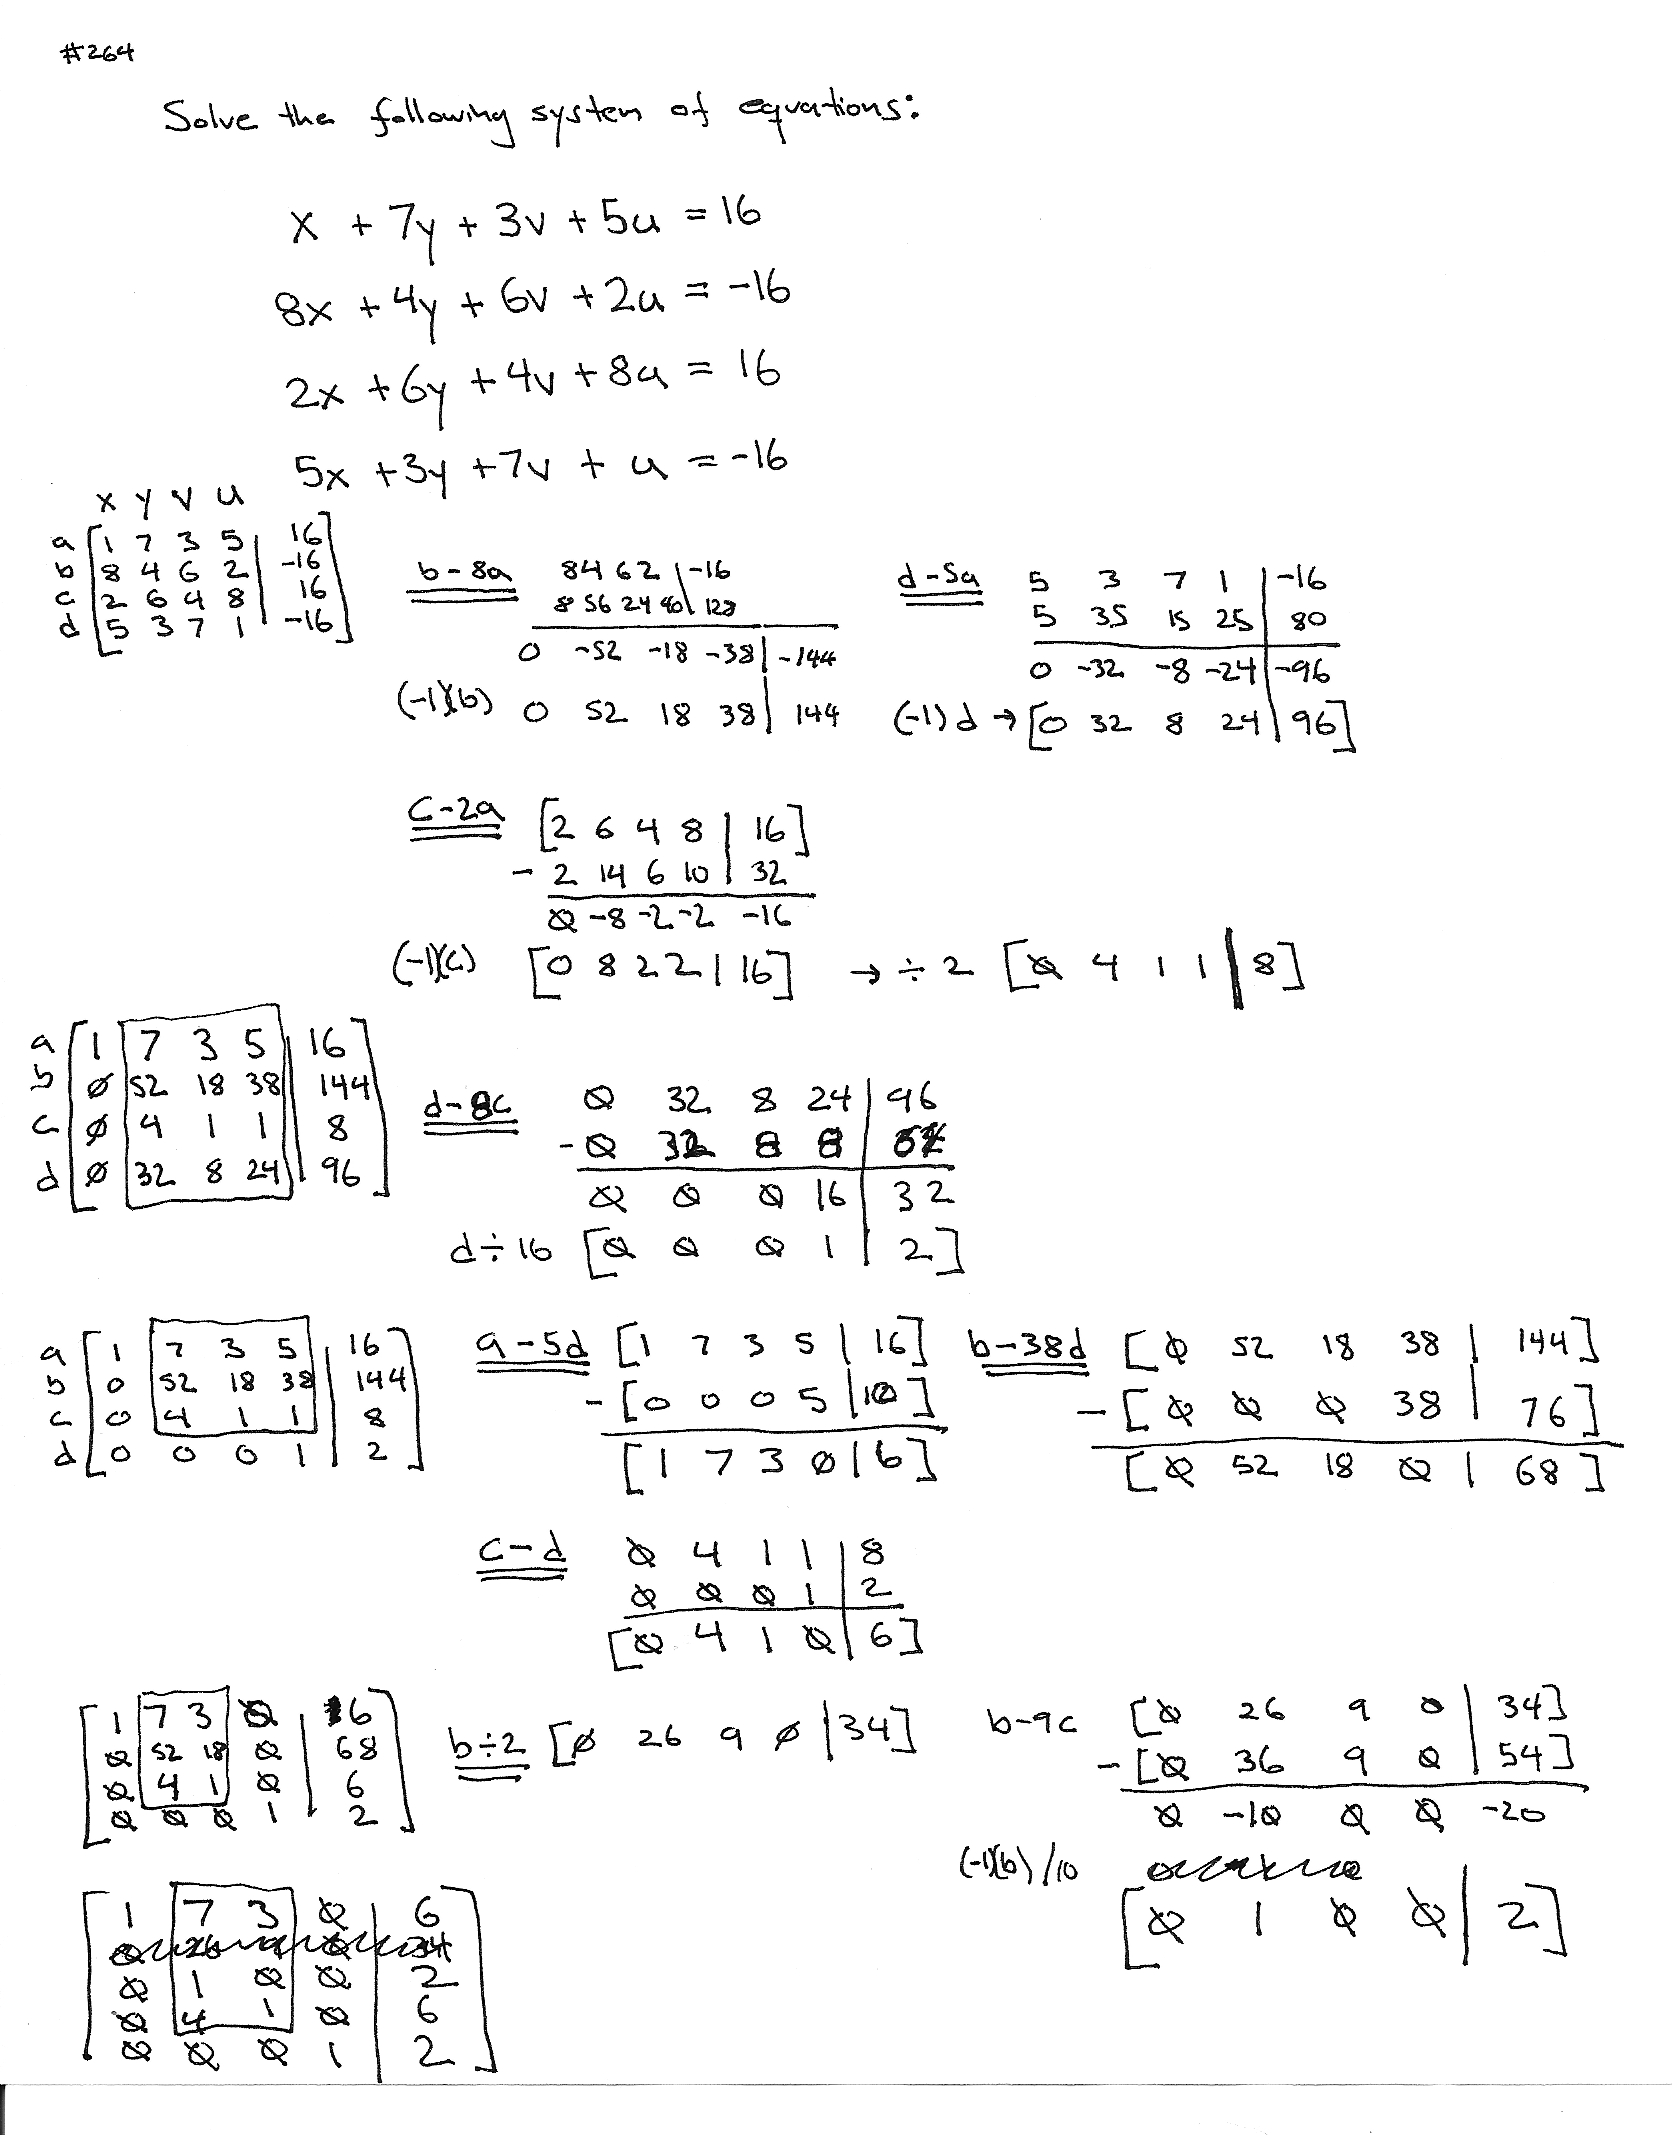 #264
Solve the following system of equations:
x + 7y + 3v + 5u = 16
8x + 4y + 6v + 2u = -16
2x + 6y + 4v + 8u = 16
5x + 3y + 7v + u = -16
x y v u
a [1 7 3 5 | 16]
b [8 4 6 2 | -16]
c [2 6 4 8 | 16]
d [5 3 7 1 | -16]
b-8a 8 4 6 2 | -16
8 56 24 40 | 128
0 -52 -18 -38 | -144
(-1)(b) 0 52 18 38 | 144
d-5a 5 3 7 1 | -16
5 35 15 25 | 80
0 -32 -8 -24 | -96
(-1)d → [0 32 8 24 | 96]
c-2a [2 6 4 8 | 16]
- 2 14 6 10 | 32
0 -8 -2 -2 -16
(-1)(c) [0 8 2 2 | 16] → ÷ 2 [0 4 1 1 | 8]
a [1 7 3 5 | 16]
b [0 52 18 38 | 144]
c [0 4 1 1 | 8]
d [0 32 8 24 | 96]
d-8c 0 32 8 24 | 96
- 0 32 8 8 |
0 0 0 16 | 32
d÷16 [0 0 0 1 | 2]
a [1 7 3 5 | 16]
b [0 52 18 38 | 144]
c [0 4 1 1 | 8]
d [0 0 0 1 | 2]
a-5d [1 7 3 5 | 16]
- [0 0 0 5 | 10]
[1 7 3 0 | 6]
b-38d [0 52 18 38 | 144]
- [0 0 0 38 | 76]
[0 52 18 0 | 68]
c-d 0 4 1 1 | 8
0 0 0 1 | 2
[0 4 1 0 | 6]
[1 7 3 0 | 6]
[0 52 18 0 | 68]
[0 4 1 0 | 6]
[0 0 0 1 | 2]
b÷2 [0 26 9 0 | 34]
b-9c [0 26 9 0 | 34]
- [0 36 9 0 | 54]
0 -10 0 0 -20
(-1)(b) /10
[0 1 0 0 | 2]
[1 7 3 0 | 6]
0 26 9 0 34
[0 1 0 0 | 2]
[0 4 1 0 | 6]
[0 0 0 1 | 2]